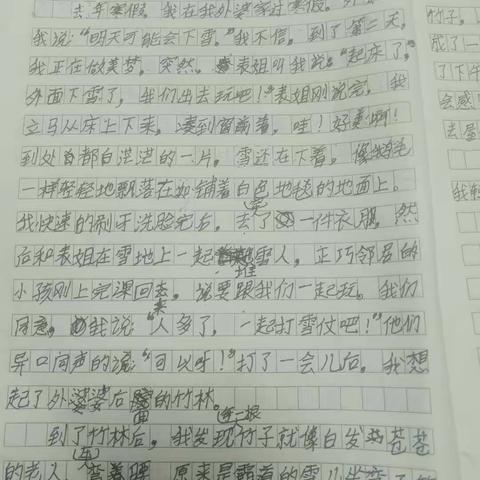 去年寒假，我在我外婆家过寒假。
我说："明天可能会下雪。"我不信，到了第二天，
我正在做美梦，突然，表姐叫我说："起床了，
外面下雪了，我们出去玩吧！"表姐刚说完，我
立马从床上下来，凑到窗前看，哇！好美啊！
到处都白茫茫的一片，雪还在下着，像鹅毛
一样轻轻地飘落在如铺着白色地毯的地面上。
我快速的刷牙洗脸完后，穿了一件衣服，然
后和表姐在雪地上一起堆雪人，正巧邻居的
小孩刚上完课回来，说要跟我们一起玩。我们
同意，我说："人多了，一起打雪仗吧！"他们
异口同声的说："可以呀！"打了一会儿后，我想
起了外婆后面的竹林。
到了竹林后，我发现竹子就像白发苍苍
的老人，弯着腰，原来是
竹子，
成了一
了下午
会感
去屋
我